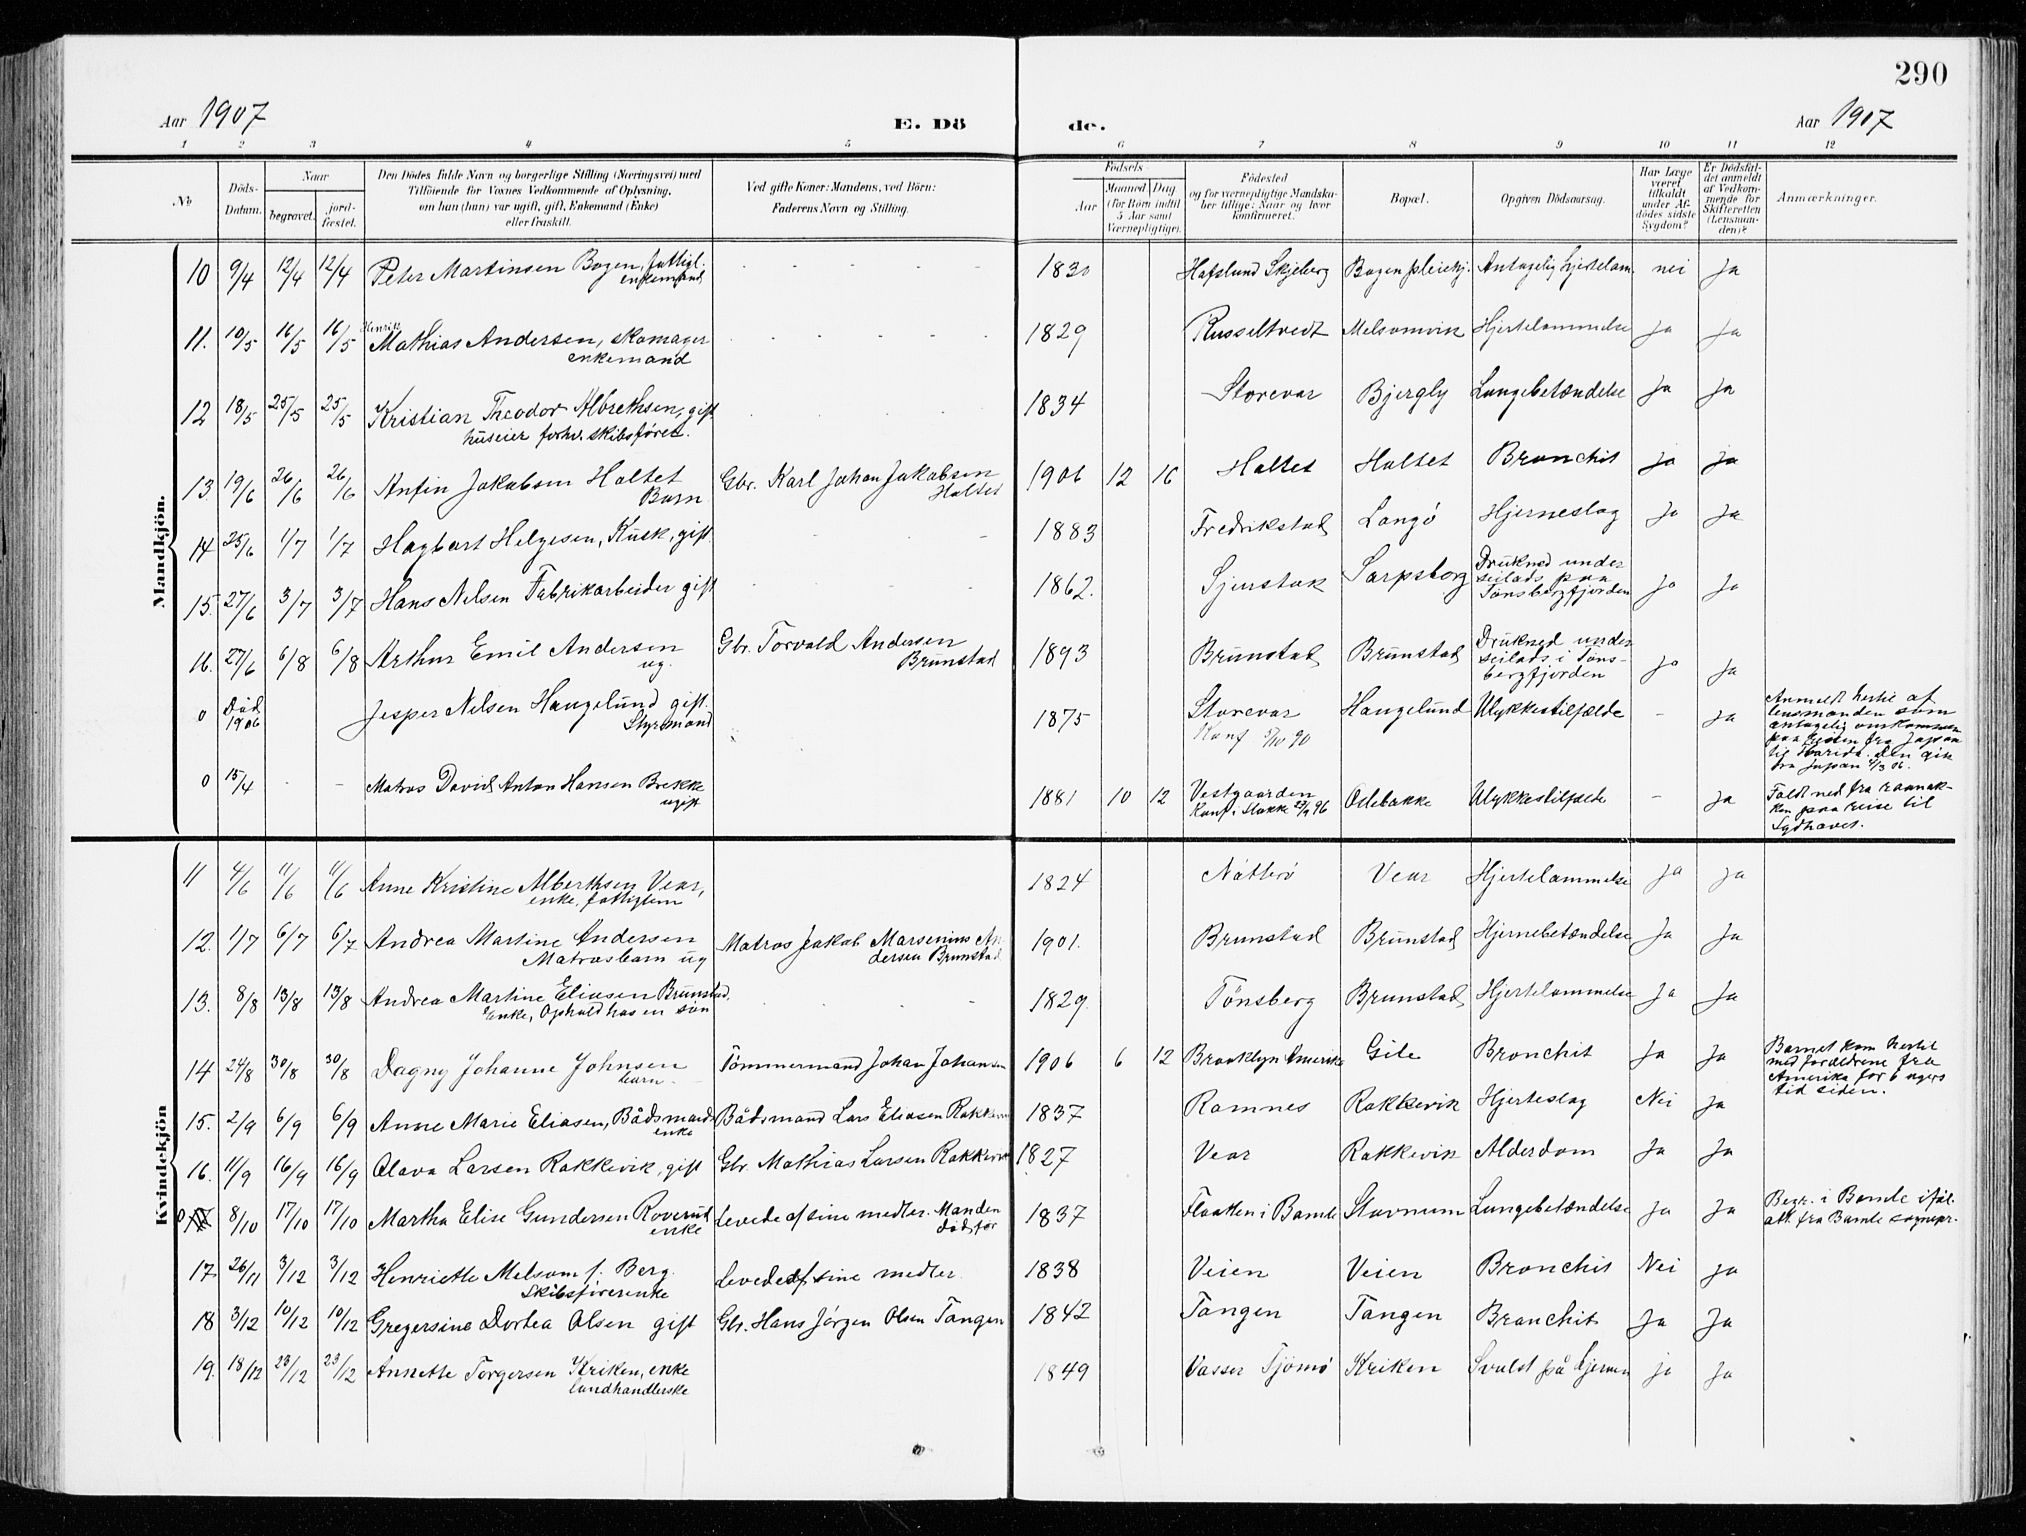 290
Aar 1907 E. Dö de. Aar 1907
1 2 3 4 5 6 7 8 9 10 11 12
No
Döds-
Datum.
Naar
begravet.
jord-
fæstet.
Den Dödes fulde Navn og borgerlige Stilling (Næringsvei) med
Tilföiende for Voxnes Vedkommende af Oplysning,
om han (hun) var ugift, gift, Enkemand (Enke)
eller fraskilt.
Ved gifte Koner: Mandens, ved Börn:
Faderens Navn og Stilling.
Födsels
Aar
Maaned Dag
(for Börn indtil
5 Aar samt
Værnepligtige).
Födested
og for værnepligtige Mandska-
ber tillige: Naar og hvor
konfirmeret.
Bopæl.
Opgiven Dödsaarsag.
Har Læge
været
tilkaldt
under Af-
dödes sidste
Sygdom?
Er Dödsfal-
det anmeldt
af Vedkom-
mende for
Skifteretten
(Lensman-
den)?
Anmærkninger.
Mandkjön.
10 9/4 12/4 12/4 Peter Martinsen Bogen, fattigl. 1830 Hafslund Skjeberg Bogen pleiehj. Antagelig hjertelam. nei Ja
enkemand
Henrik
11. 10/5 16/5 16/5 Mathias Andersen, skomager 1829 Russeltvedt Melsomvik Hjertelammelse Ja Ja
enkemand
12 18/5 25/5 25/5 Kristian Theodor Albrethsen, gift 1834 Storevar Bjergly Lungebetændelse Ja Ja
huseier forhv. skibsfører.
13. 19/6 26/6 26/6 Anfin Jakobsen Holtet Gbr. Karl Johan Jakobsen 1906 12 16 Holtet Holtet Bronchit ja ja
Barn Holtet
14 25/6 1/7 1/7 Hagbart Helgesen, Kusk, gift 1883 Fredrikstad Langö Hjerneslag Ja Ja
15. 27/6 3/7 3/7 Hans Nelsen Fabrikarbeider gift 1862. Sarpsborg Drukned under
seilads paa
Tönsbergfjorden Jo Ja
16. 27/6 6/8 6/8 Arthur Emil Andersen Gbr. Torvald Andersen 1893 Brunstad Brunstad Drukned under
ug. Brunstad seilads i Töns-
bergfjorden Jo Ja
0 Död
1906 Jesper Nelsen Haugelund gift. 1875 Storevar Haugelund Ulykkestilfælde - Ja
Styrmand Konf 5/10 90
Anmeldt hertil af
lensmanden som
antagelig omkommen
paa reisen fra Japan
til Florida. Den gik
fra Japan 4/3 06.
0 15/4 - - Matros David Anton Hansen Brekke 1881 10 12 Vestgaarden Odebakke Ulykkestilfælde - Ja
ugift Konf. i Stokke 27/9 96
Faldt ned fra raanok-
ken paa reise til
Sydhavet.
Kvindekjön
11 4/6 11/6 11/6 Anne Kristine Alberthsen Vear, 1824 Nötterö Vear Hjertelammelse Ja Ja
enke, fattiglem
12. 1/7 6/7 6/7 Andrea Martine Andersen Matros Jakob Marsenius An- 1901. Brunstad Brunstad Hjernebetændelse Ja Ja
Matrosbarn ug dersen Brunstad
13. 8/8 13/8 13/8 Andrea Martine Eliasen Brunstad, 1829. Tönsberg Brunstad Hjertelammelse Ja Ja
Enke, Ophold hos en sön
14 24/8 30/8 30/8 Dagny Johanne Johnsen Tömmermand Johan Johansen 1906 6 12 Brooklyn Amerika Gile Bronchit Ja Ja
barn
Barnet kom hertil
med forældrene fra
Amerika for 6 ugers
tid siden.
15. 2/9 6/9 6/9 Anne Marie Eliasen, Bådsmands Bådsmand Lars Eliasen Rakkevik 1837 Ramnes Rakkevik Hjerteslag Nei Ja
enke
16. 11/9 16/9 16/9 Olava Larsen Rakkevik, gift Gbr. Mathias Larsen Rakkevik 1827 Vear Rakkevik Alderdom Ja Ja
0 8/10 17/10 17/10 Martha Elise Gundersen Roverud Levede af sine midler. Manden 1837 Flaatten i Bamle Stavnum Lungebetændelse Ja Ja
enke död för
Begr. i Bamle iföl.
att. fra Bamle sognepr.
17 26/11 3/12 3/12 Henriette Melsom f. Berg Levede af sine midler 1838 Veien Veien Bronchit Nei Ja
Skibsförerenke
18 3/12 10/12 10/12 Gregersine Dortea Olsen gift Gbr. Hans Jörgen Olsen Tangen 1842 Tangen Tangen Bronchit Ja Ja
19. 18/12 23/12 23/12 Annette Torgersen Kriken, enke 1849 Vasser Tjömö Kriken Svulst på hjernen ja Ja
landhandlerske